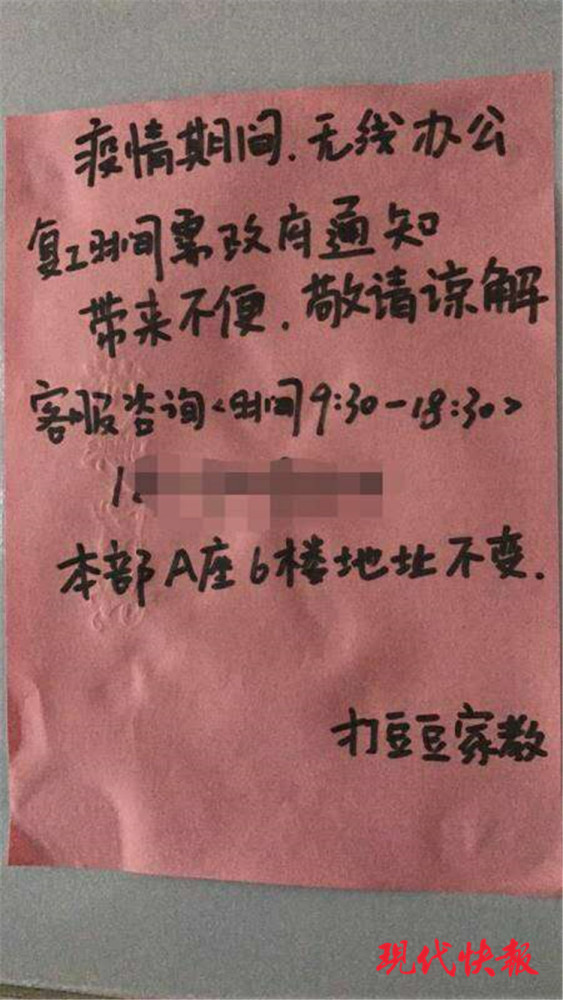 疫情期间.无线办公
复工时间票政府通知
带来不便.敬请谅解
客服咨询<时间9:30-18:30>
1
本部A座6楼地址不变.
打豆豆家教
现代快报